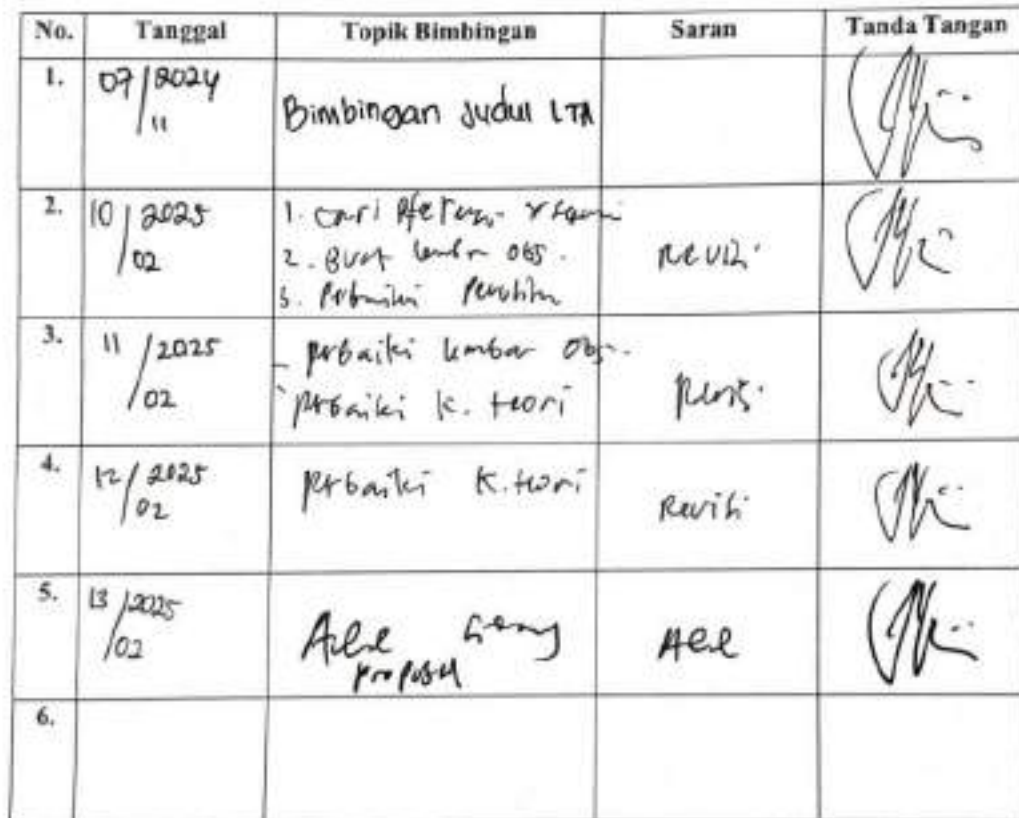 No. Tanggal Topik Bimbingan Saran Tanda Tangan
1. 07/11 2024 Bimbingan Judul LTA
2. 10/02 2025 1. Cari
2. Buat lembar obs. Revisi
3. Perbaiki
3. 11/02 2025 - perbaiki lembar obs.
- perbaiki k. teori Revisi
4. 12/02 2025 perbaiki K. teori Revisi
5. 13/02 2025 Acc proposal Acc
6.